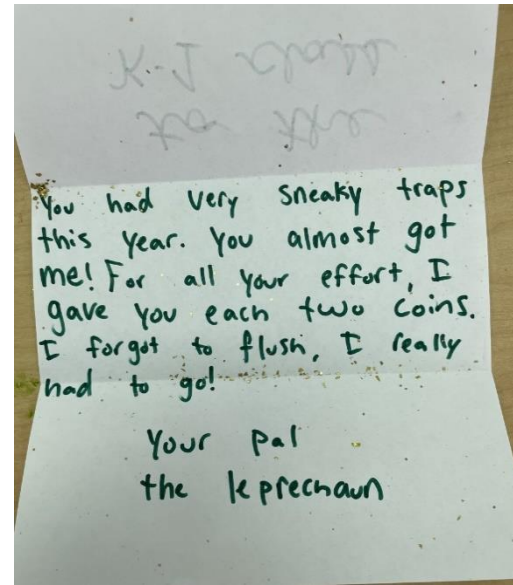 to the
K-1 class
You had very sneaky traps
this year. You almost got
me! For all your effort, I
gave you each two coins.
I forgot to flush, I really
had to go!
Your pal
the leprechaun